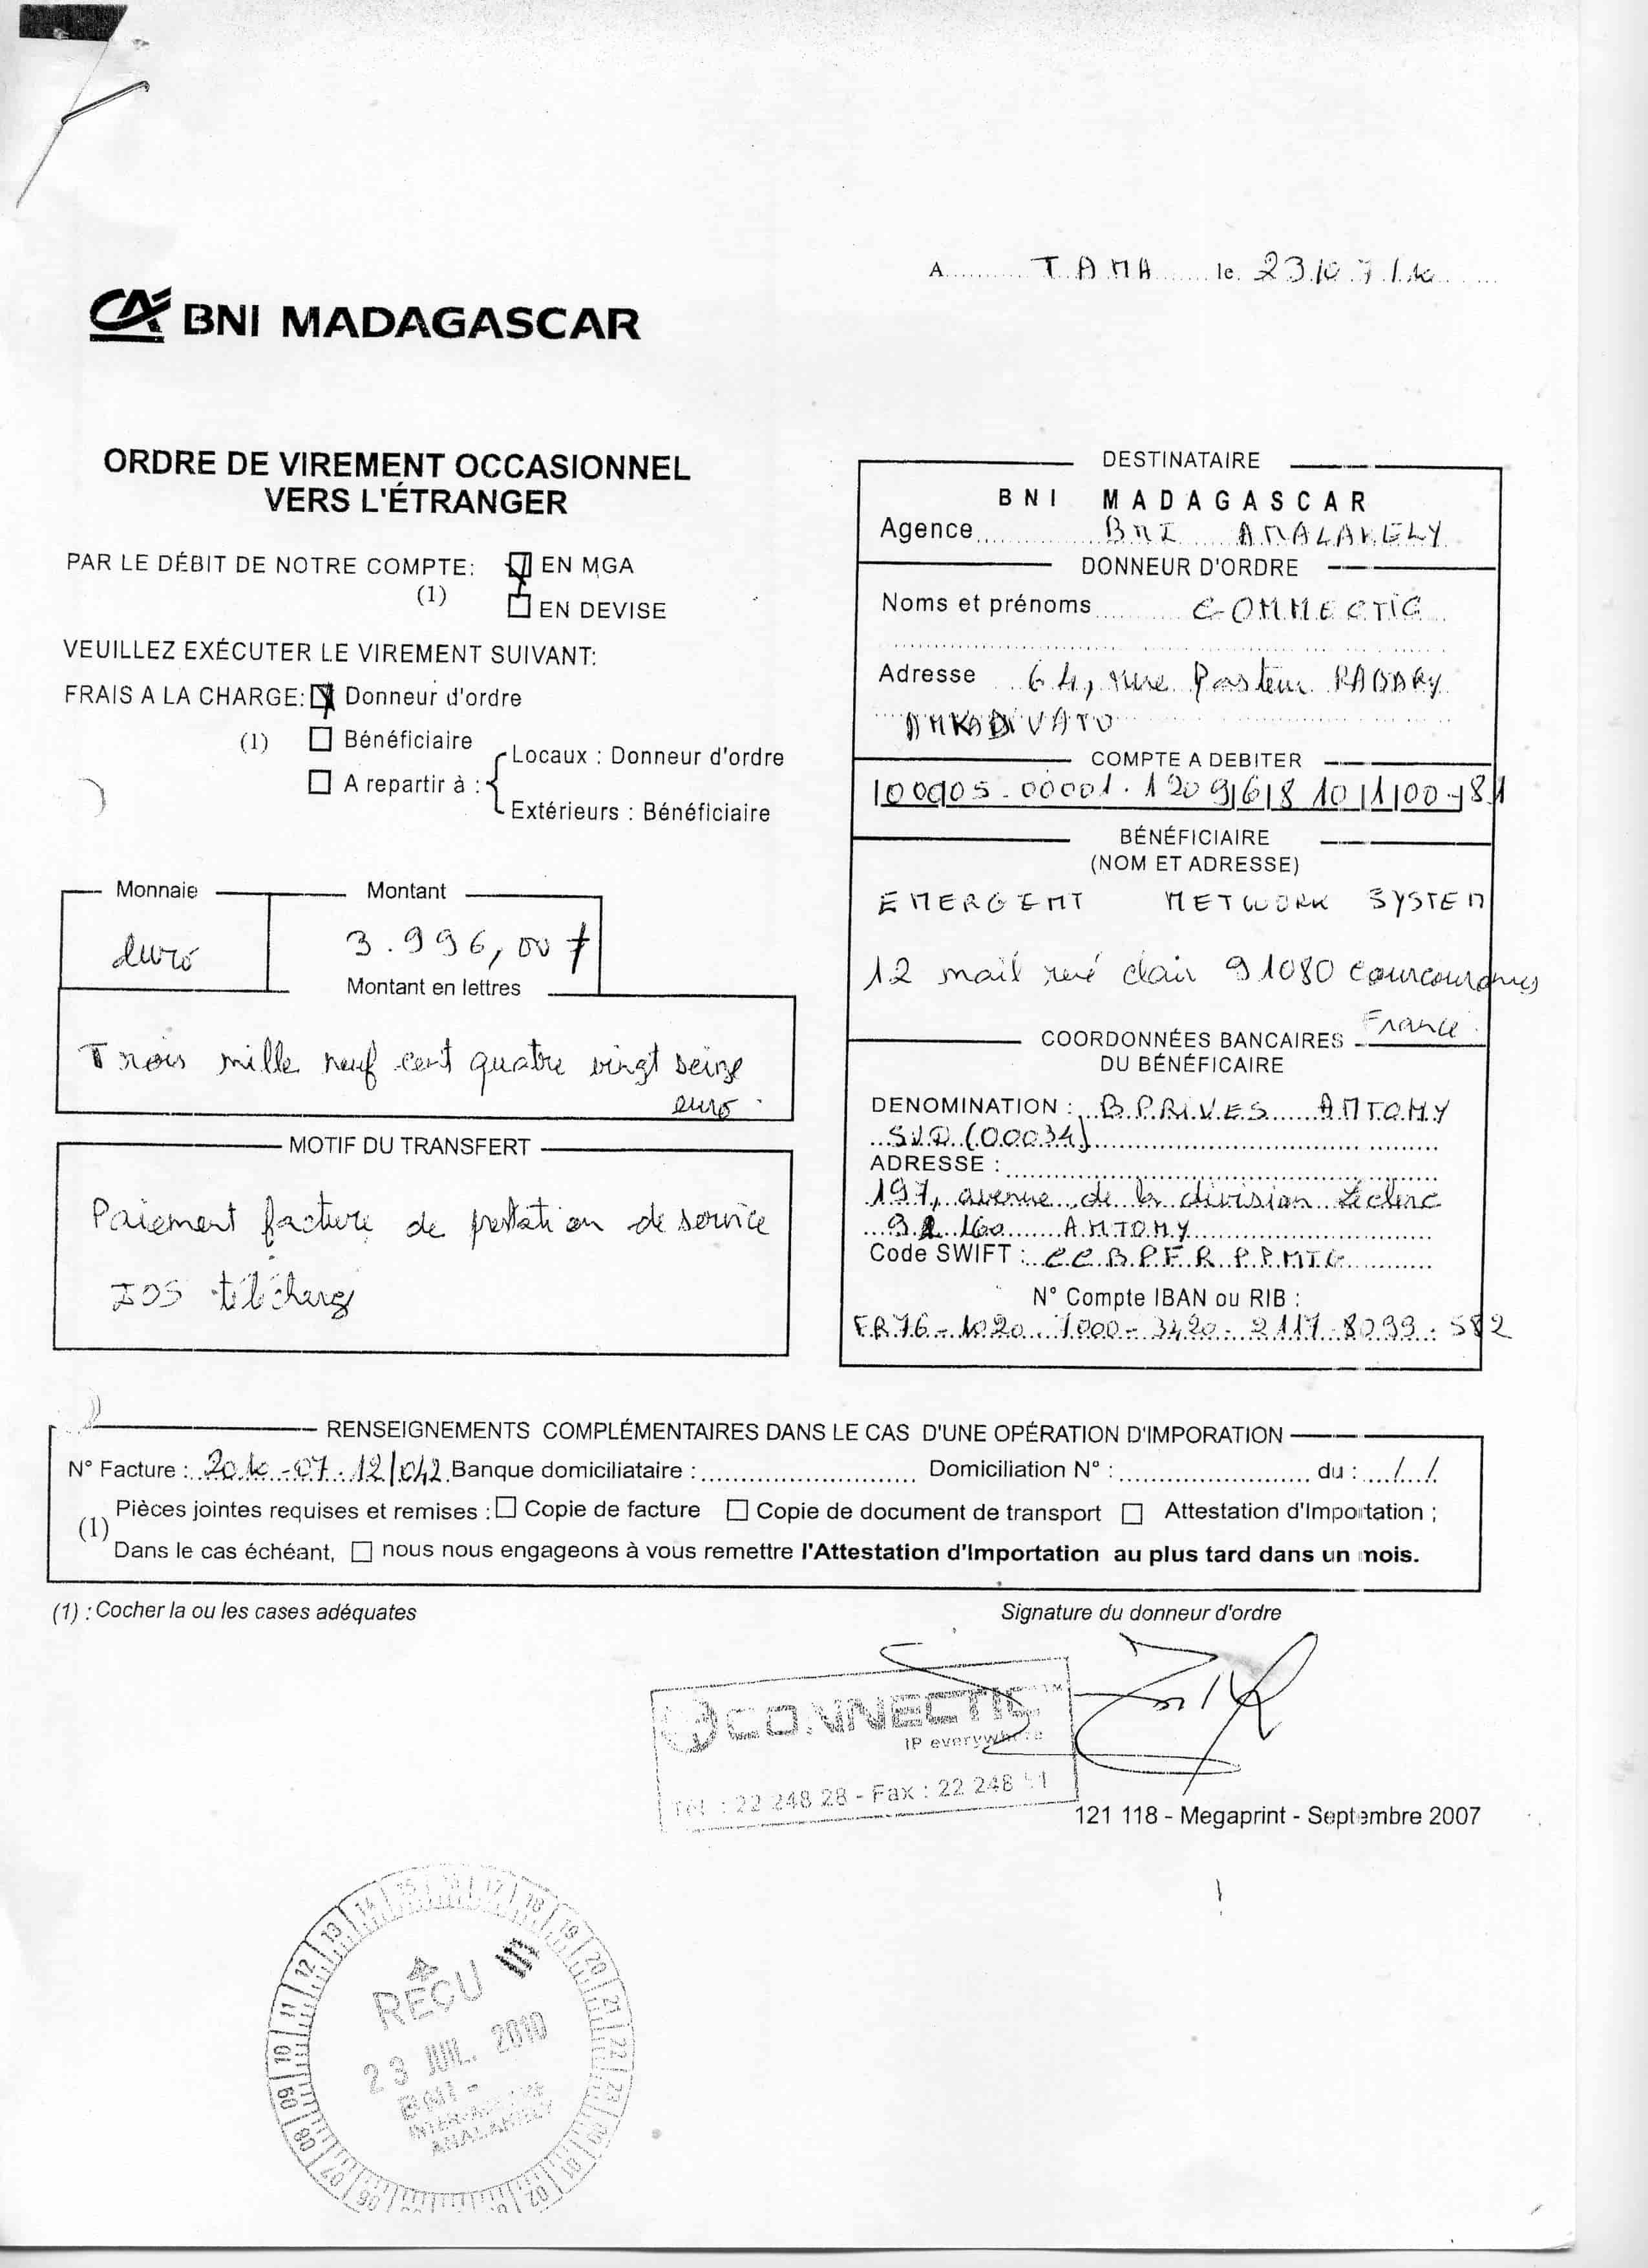 A TANA le 23/07/10
CA BNI MADAGASCAR
ORDRE DE VIREMENT OCCASIONNEL
VERS L'ÉTRANGER
PAR LE DÉBIT DE NOTRE COMPTE: EN MGA
(1) EN DEVISE
VEUILLEZ EXÉCUTER LE VIREMENT SUIVANT:
FRAIS A LA CHARGE: Donneur d'ordre
(1) Bénéficiaire
Locaux : Donneur d'ordre
A repartir à :
Extérieurs : Bénéficiaire
Monnaie Montant
euro 3.996,00
Montant en lettres
Trois mille neuf cent quatre vingt seize
euro
MOTIF DU TRANSFERT
Paiement facture de prestation de service
IOS télécharg
DESTINATAIRE
BNI MADAGASCAR
Agence BNI ANALAKELY
DONNEUR D'ORDRE
Noms et prénoms CONNECTIC
Adresse 64, rue Pasteur RABARY
ANKADIVATO
COMPTE A DEBITER
00005.00001.120968101100-81
BÉNÉFICIAIRE
(NOM ET ADRESSE)
EMERGENT NETWORK SYSTEM
12 mail rené clair 91080 courcouronnes
France
COORDONNÉES BANCAIRES
DU BÉNÉFICAIRE
DENOMINATION : B.P.RIVES ANTONY
SUD (00034)
ADRESSE :
197, avenue de la division Leclerc
92 160 ANTONY
Code SWIFT : CCBPFRPPMTG
N° Compte IBAN ou RIB :
FR76-1020.7000-3420-2117-8099-582
RENSEIGNEMENTS COMPLÉMENTAIRES DANS LE CAS D'UNE OPÉRATION D'IMPORATION
N° Facture : 2010-07-12/042 Banque domiciliataire : Domiciliation N° : du : / /
Pièces jointes requises et remises : Copie de facture Copie de document de transport Attestation d'Importation ;
(1)
Dans le cas échéant, nous nous engageons à vous remettre l'Attestation d'Importation au plus tard dans un mois.
(1) : Cocher la ou les cases adéquates
Signature du donneur d'ordre
CONNECTIC TM
IP everywhere
Tél : 22 248 28 - Fax : 22 248 51
121 118 - Megaprint - Septembre 2007
REÇU
23 JUIL. 2010
BNI -
ANALAKELY